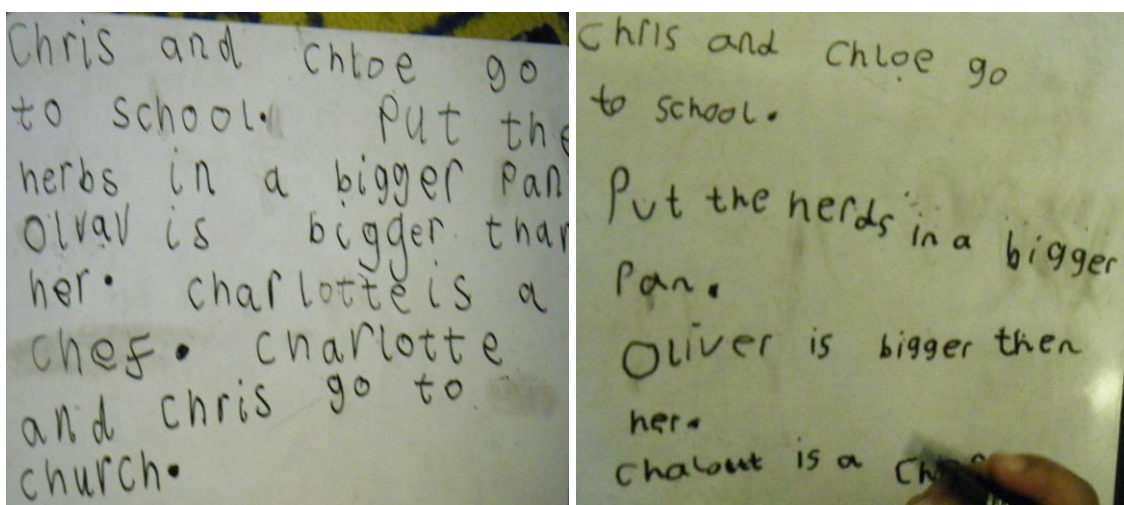 Chris and Chloe go
to school. Put the
herbs in a bigger Pan
Olvav is bigger than
her. charlotte is a
chef. Charlotte
and Chris go to
church.
Chris and Chloe go
to school.
Put the herds in a bigger
Pan.
Oliver is bigger then
her.
Chalout is a